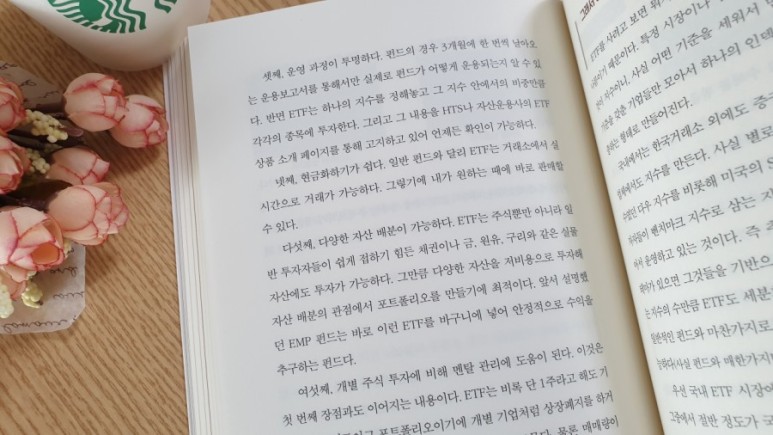 셋째, 운영 과정이 투명하다. 펀드의 경우 3개월에 한 번씩 날아오
는 운용보고서를 통해서만 실제로 펀드가 어떻게 운용되는지 알 수 있
다. 반면 ETF는 하나의 지수를 정해놓고 그 지수 안에서의 비중만큼
각각의 종목에 투자한다. 그리고 그 내용을 HTS나 자산운용사의 ETF
상품 소개 페이지를 통해 고지하고 있어 언제든 확인이 가능하다.
넷째, 현금화하기가 쉽다. 일반 펀드와 달리 ETF는 거래소에서 실
시간으로 거래가 가능하다. 그렇기에 내가 원하는 때에 바로 판매할
수 있다.
다섯째, 다양한 자산 배분이 가능하다. ETF는 주식뿐만 아니라 일
반 투자자들이 쉽게 접하기 힘든 채권이나 금, 원유, 구리와 같은 실물
자산에도 투자가 가능하다. 그만큼 다양한 자산을 저비용으로 투자해
자산 배분의 관점에서 포트폴리오를 만들기에 최적이다. 앞서 설명했
던 EMP 펀드는 바로 이런 ETF를 바구니에 넣어 안정적으로 수익을
추구하는 펀드다.
여섯째, 개별 주식 투자에 비해 멘탈 관리에 도움이 된다. 이것은
첫 번째 장점과도 이어지는 내용이다. ETF는 비록 단 1주라고 해도 기
포트폴리오이기에 개별 기업처럼 상장폐지를 하거
물론 매매량이
그래서
ETF를 사려고 보면 뭐
때문이다. 특정 시장이나
지수이니, 사실 어떤 기준을 세워서
갖춘 기업들만 모아서 하나의 인데
형태로 만들어진다.
국내에서는 한국거래소 외에도 증
지수를 만든다. 사실 별로
다우 지수를 비롯해 미국의 S
벤치마크 지수로 삼는 자
운영하고 있는 것이다. 즉
있으면 그것들을 기반으
지수의 수만큼 ETF도 세분
일반적인 펀드와 마찬가지로
펀드와 매한가지
우선 국내 ETF 시장에
절반 정도가 국